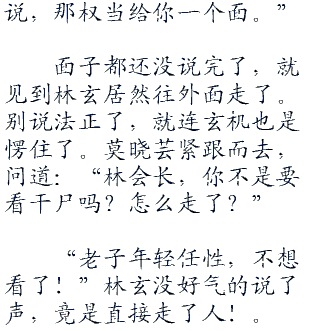 说，那权当给你一个面。”
面子都还没说完了，就
见到林玄居然往外面走了。
别说法正了，就连玄机也是
愣住了。莫晓芸紧跟而去，
问道：“林会长，你不是要
看干尸吗？怎么走了？”
“老子年轻任性，不想
看了！”林玄没好气的说了
声，竟是直接走了人！。